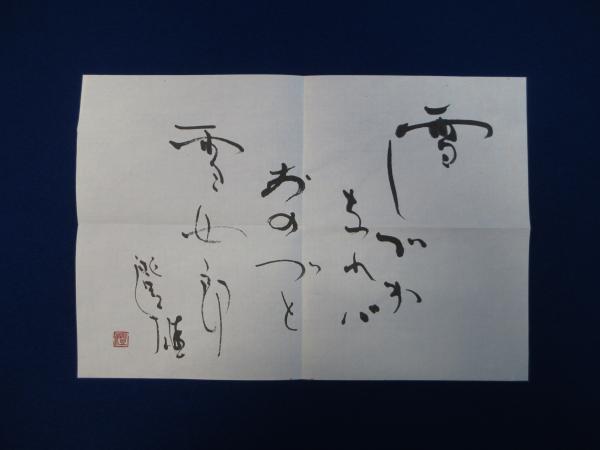 雪しづか
なれバ
おのづと
雪女郎